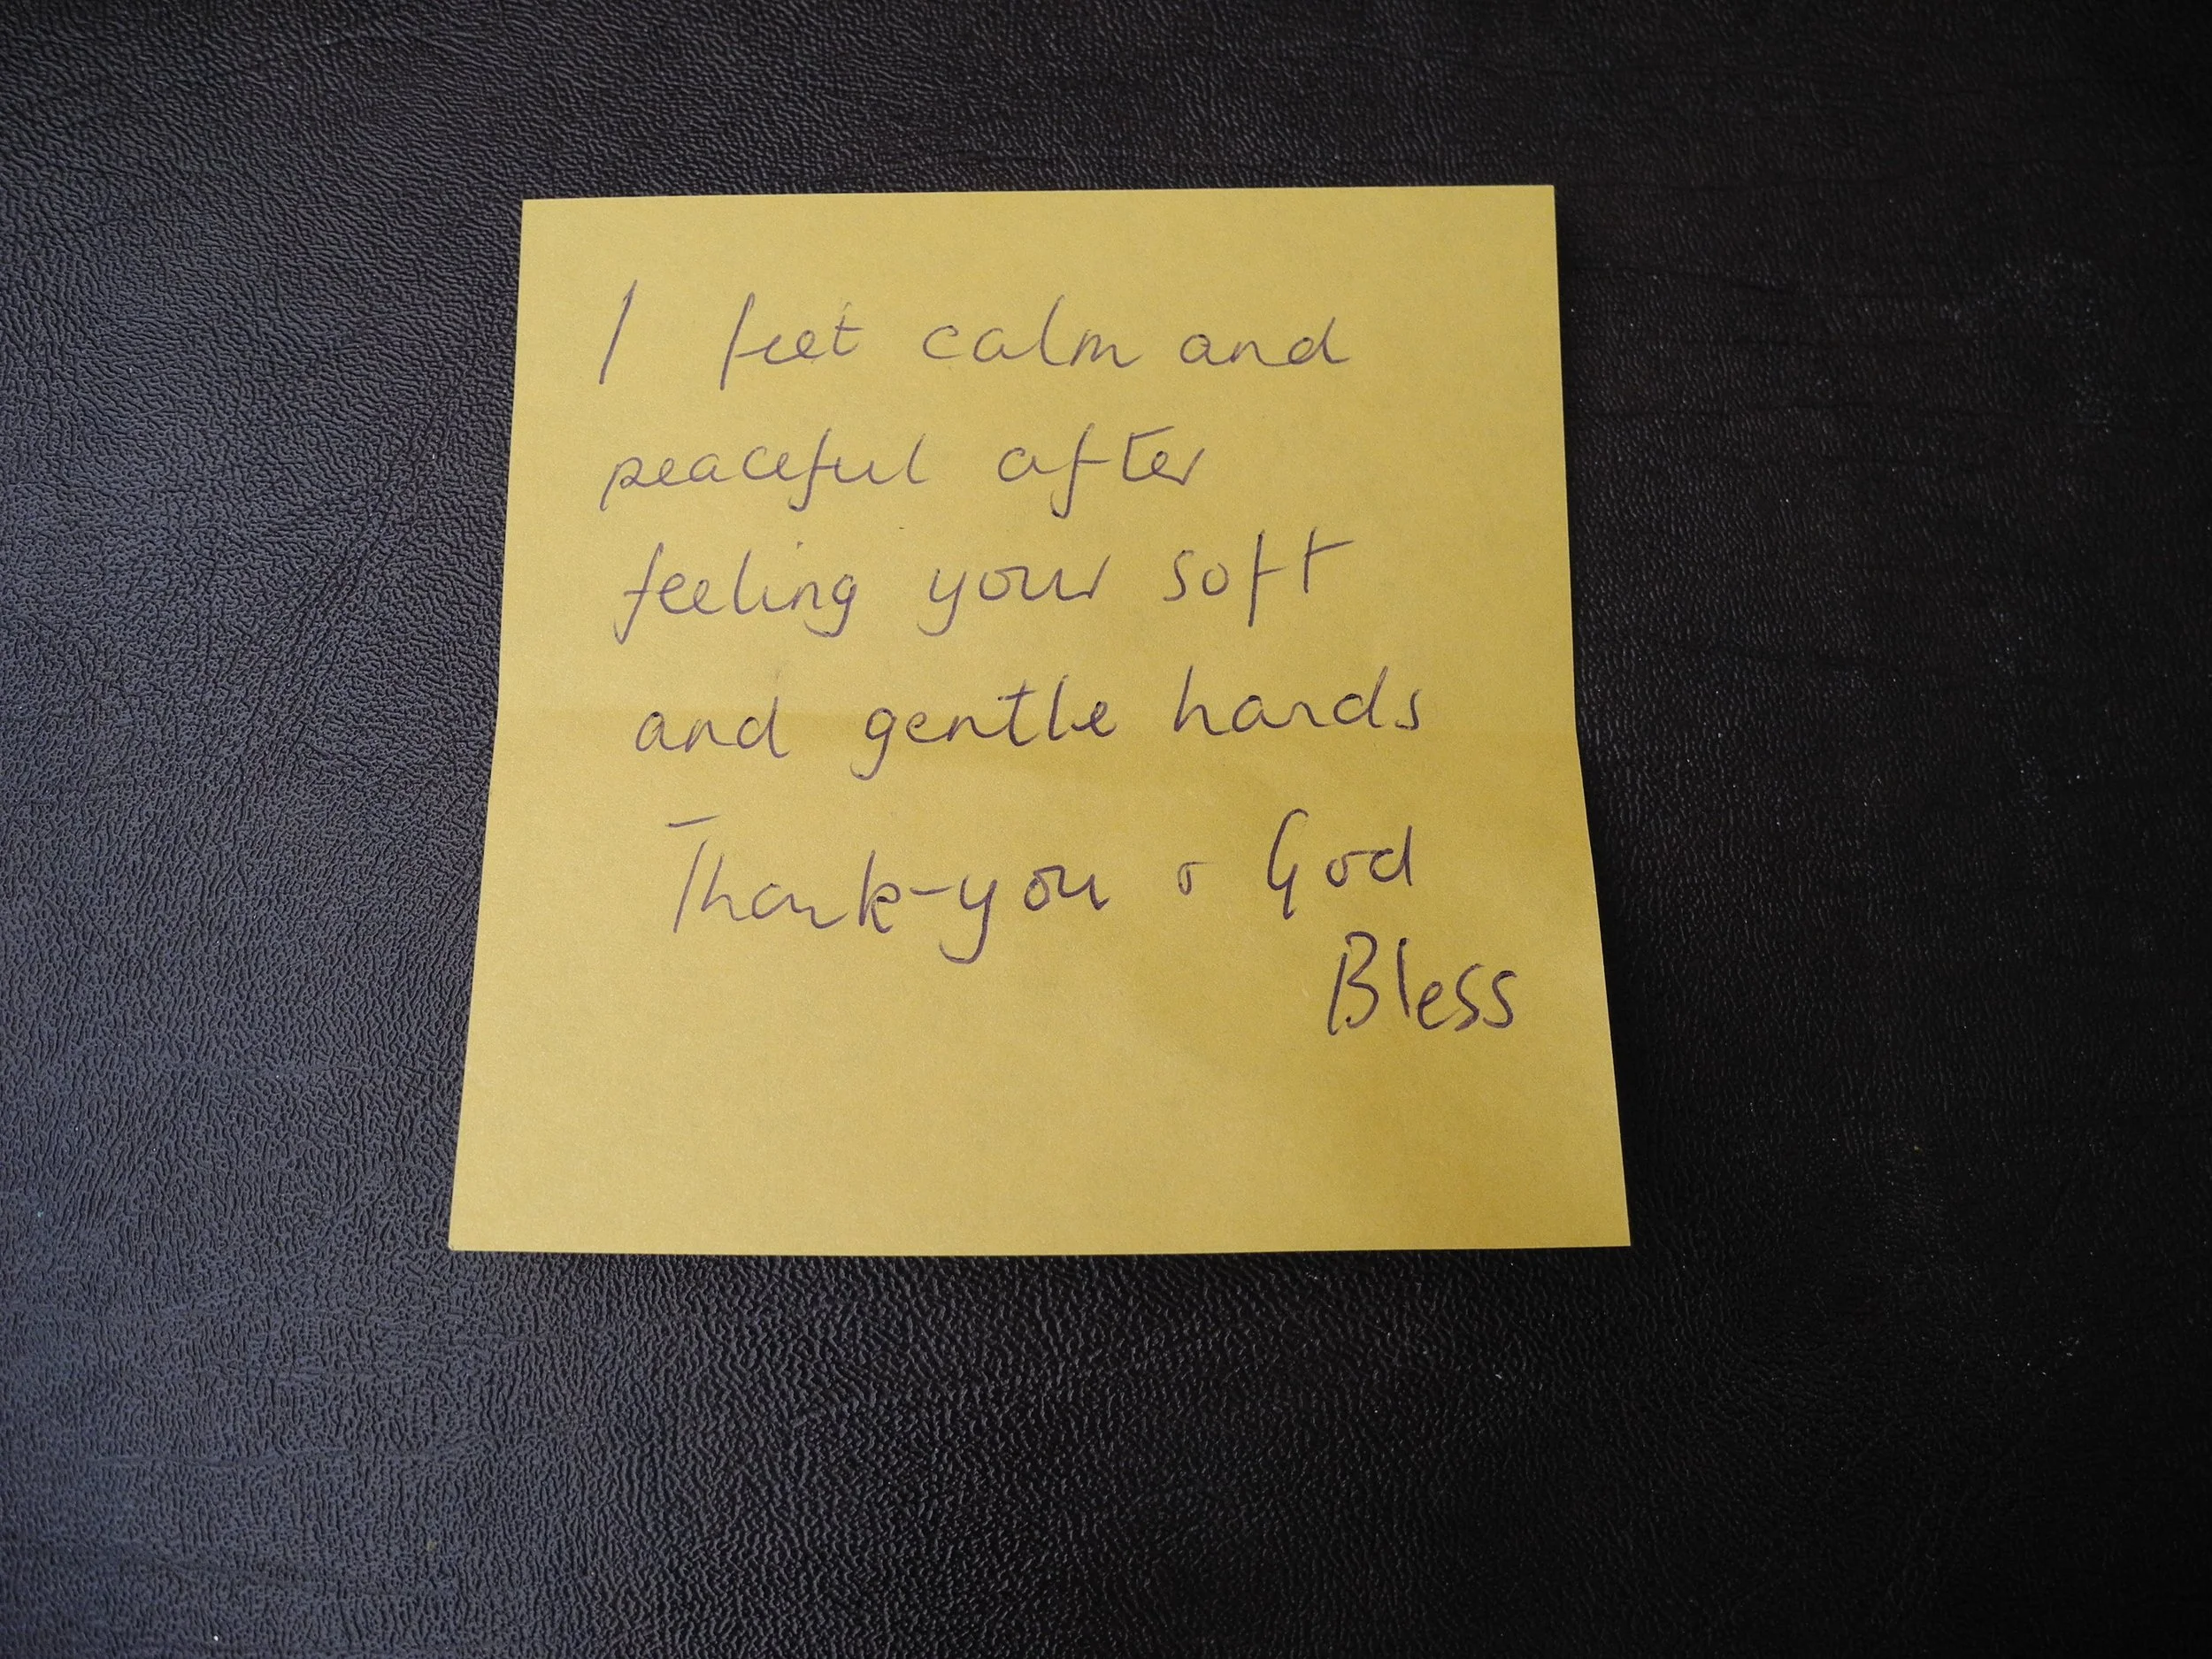 I feet calm and
peaceful after
feeling your soft
and gentle hands
Thank-you & God
Bless